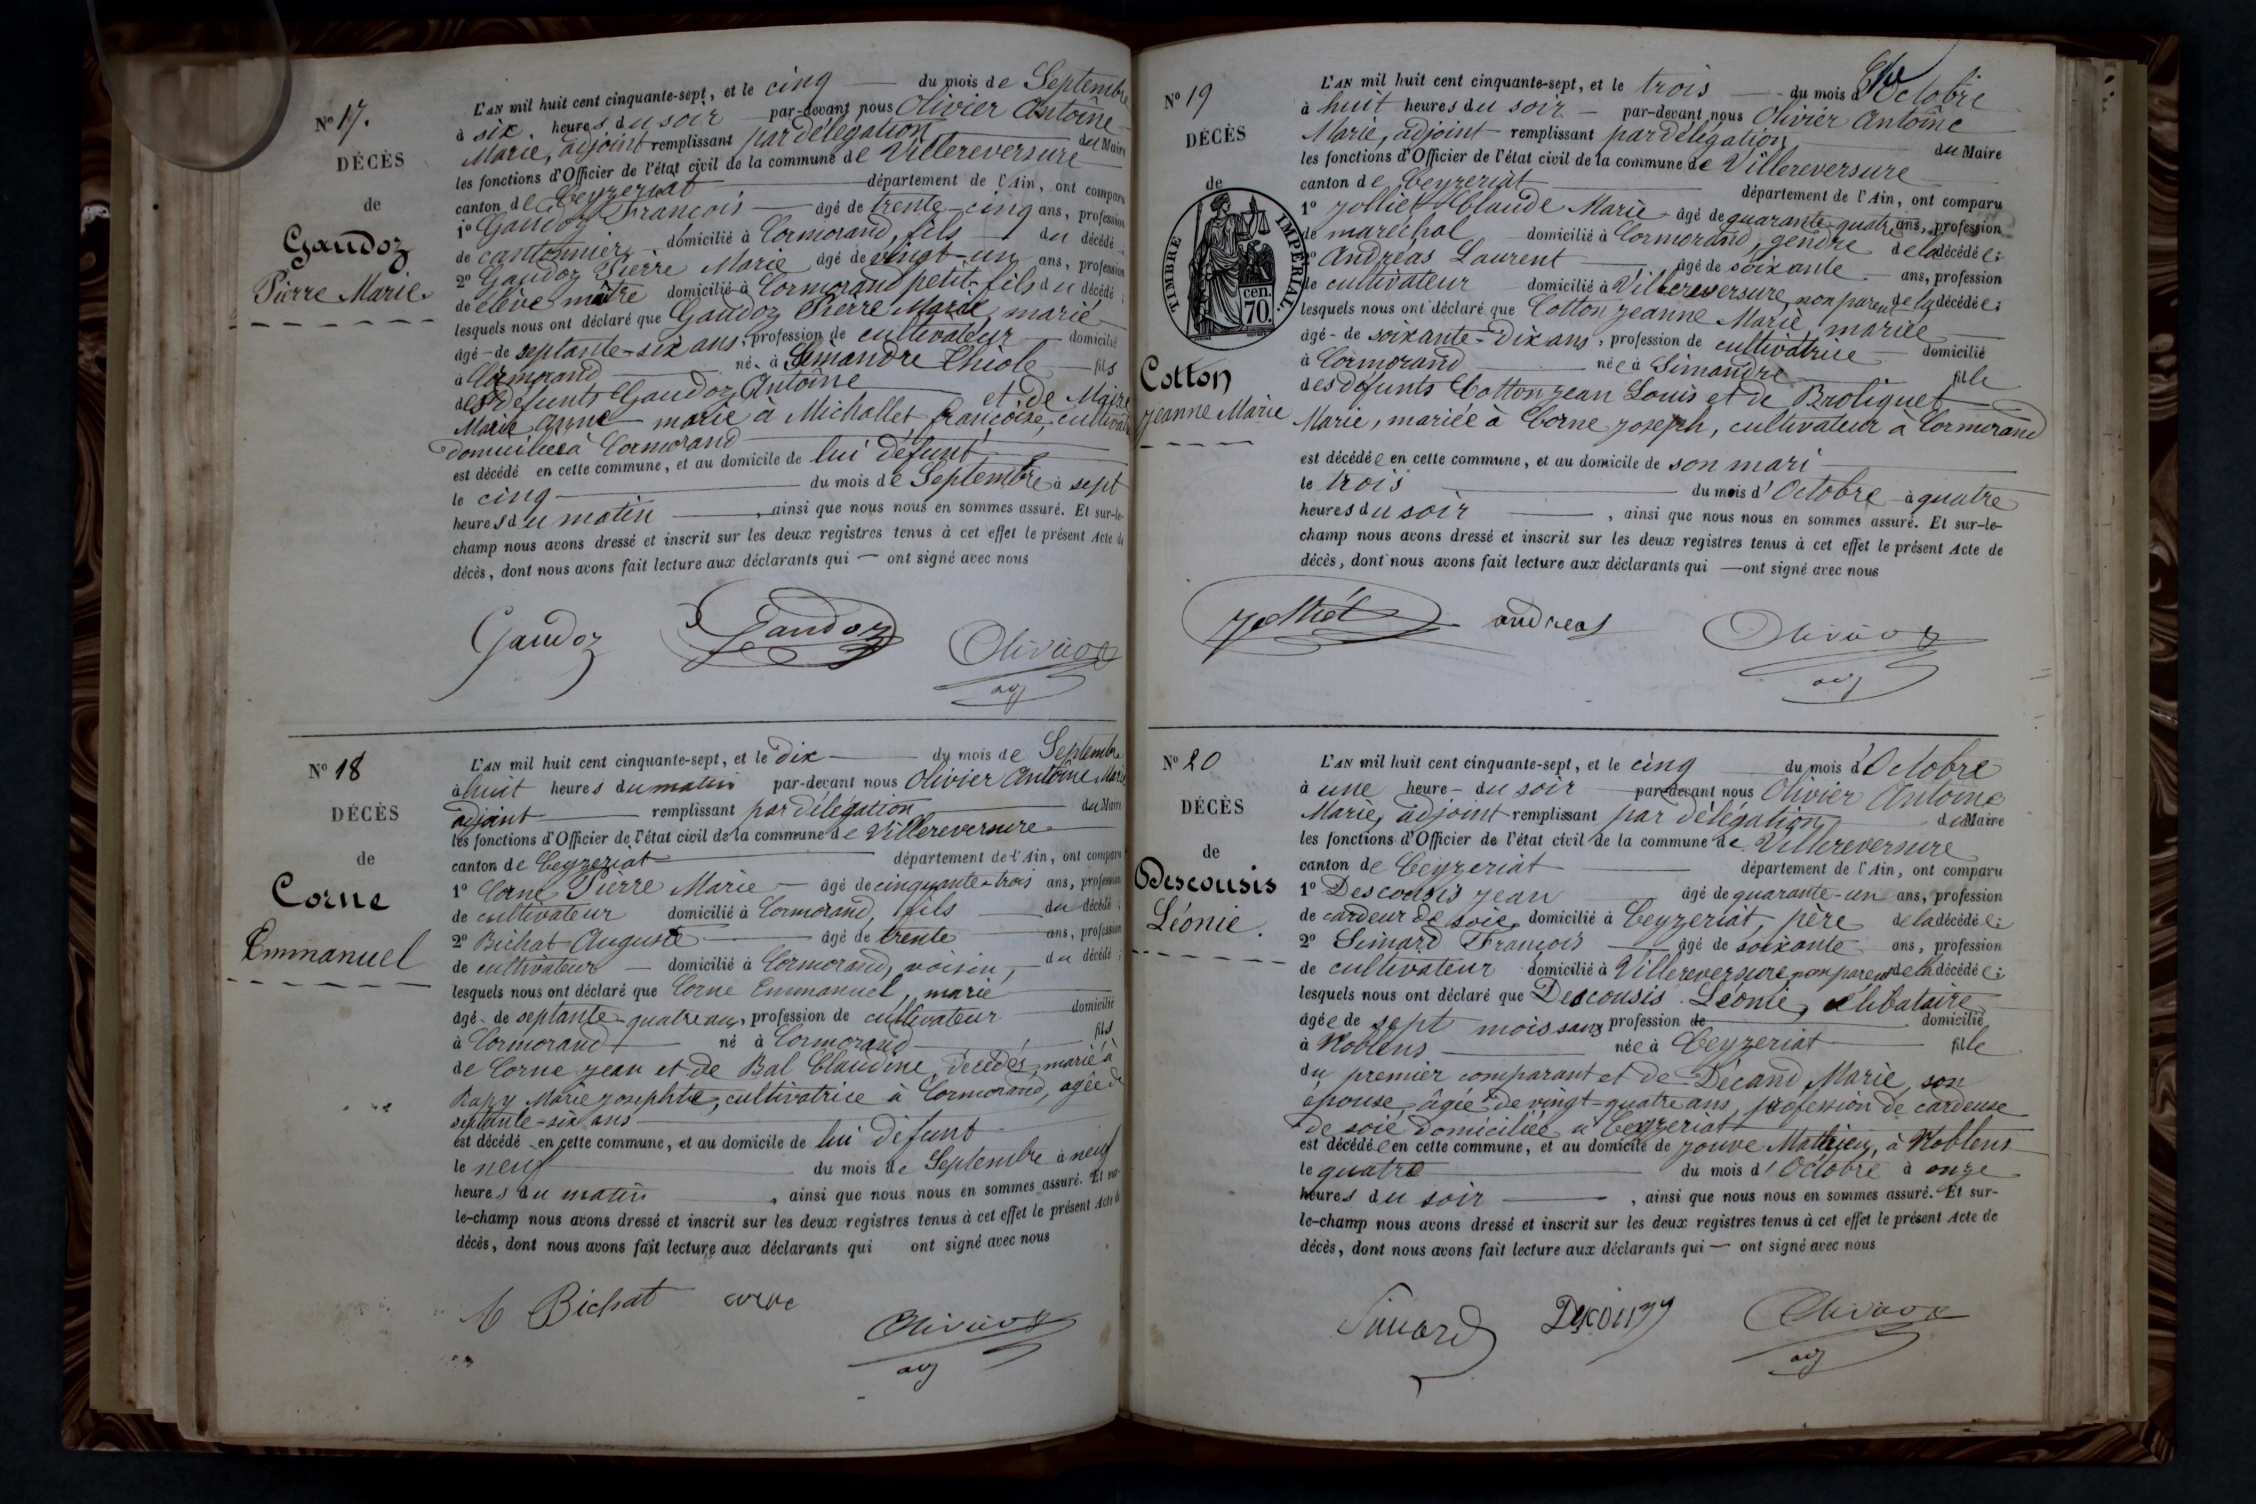 N° 17.
DÉCÈS
de
Gaudoz
Pierre Marie.
L'AN mil huit cent cinquante-sept, et le cinq du mois de Septembre
à six heures du soir par-devant nous Olivier Antoîne
Marie, adjoint remplissant par délégation du Maire
les fonctions d'Officier de l'état civil de la commune de Villereversure
canton de Ceyzeriat département de l'Ain, ont comparu
1° Gaudoz François âgé de trente-cinq ans, profession
de cantonnier domicilié à Cormorand, fils du décédé;
2° Gaudoz Pierre Marie âgé de vingt-un ans, profession
de élève maître domicilié à Cormorand petit-fils du décédé;
lesquels nous ont déclaré que Gaudoz Pierre Marie, marié
âgé de septante-six ans, profession de cultivateur domicilié
à Cormorand né à Simandre fils
des défunts Gaudoz Antoîne et de Maire
Marie Anne marié à Michollet françoise, cultivat
domiciliée à Cormorand
est décédé en cette commune, et au domicile de lui défunt
le cinq du mois de Septembre à sept
heures du matin, ainsi que nous nous en sommes assuré. Et sur-le-
champ nous avons dressé et inscrit sur les deux registres tenus à cet effet le présent Acte de
décès, dont nous avons fait lecture aux déclarants qui — ont signé avec nous
Gaudoz Gaudoz Olivier
adj
N° 18
DÉCÈS
de
Corne
Emmanuel
L'AN mil huit cent cinquante-sept, et le dix du mois de Septembre
à huit heures du matin par-devant nous Olivier Antoîne Marie
adjoint remplissant par délégation du Maire
les fonctions d'Officier de l'état civil de la commune de Villereversure
canton de Ceyzeriat département de l'Ain, ont comparu
1° Corne Pierre Marie — âgé de cinquante-trois ans, profession
de cultivateur domicilié à Cormorand, fils du décédé;
2° Bichat Auguste âgé de trente ans, profession
de cultivateur — domicilié à Cormorand, voisin, du décédé;
lesquels nous ont déclaré que Corne Emmanuel, marié
âgé de septante-quatre ans, profession de cultivateur domicilié
à Cormorand né à Cormorand fils
de Corne jean et de Bal Claudine, décédés, marié à
Rapy Marie josephte, cultivatrice à Cormorand, agée de
septante-six ans
est décédé en cette commune, et au domicile de lui défunt
le neuf du mois de Septembre à neuf
heures du matin, ainsi que nous nous en sommes assuré. Et sur-
le-champ nous avons dressé et inscrit sur les deux registres tenus à cet effet le présent Acte de
décès, dont nous avons fait lecture aux déclarants qui ont signé avec nous
Bichat corne
Olivier
adj
N° 19
DÉCÈS
de
TIMBRE IMPÉRIAL.
cen.
70.
Cotton
jeanne Marie
L'AN mil huit cent cinquante-sept, et le trois du mois d'Octobre
à huit heures du soir — par-devant nous Olivier Antoîne
Marie, adjoint remplissant par délégation du Maire
les fonctions d'Officier de l'état civil de la commune de Villereversure
canton de Ceyzeriat département de l'Ain, ont comparu
1° jolliet Claude Marie âgé de quarante-quatre ans, profession
de maréchal domicilié à Cormorand, gendre de la décédée;
2° Andréas Laurent âgé de soixante ans, profession
de cultivateur domicilié à Villereversure, non parent de la décédée;
lesquels nous ont déclaré que Cotton jeanne Marie, mariée
âgé de soixante-Dix ans, profession de cultivatrice domicilié
à Cormorand née à Simandre fille
des défunts Cotton jean Louis et de Broliquet
Marie, mariée à Corne joseph, cultivateur à Cormorand
est décédée en cette commune, et au domicile de son mari
le trois du mois d'Octobre à quatre
heures du soir, ainsi que nous nous en sommes assuré. Et sur-le-
champ nous avons dressé et inscrit sur les deux registres tenus à cet effet le présent Acte de
décès, dont nous avons fait lecture aux déclarants qui — ont signé avec nous
jolliet andreas Olivier
adj
N° 20
DÉCÈS
de
Descousis
Léonie.
L'AN mil huit cent cinquante-sept, et le cinq du mois d'Octobre
à une heure du soir par-devant nous Olivier Antoine
Marie, adjoint remplissant par délégation du Maire
les fonctions d'Officier de l'état civil de la commune de Villereversure
canton de Ceyzeriat département de l'Ain, ont comparu
1° Descousis jean âgé de quarante-un ans, profession
de cardeur de soie domicilié à Ceyzeriat, père de la décédée;
2° Simard François âgé de soixante ans, profession
de cultivateur domicilié à Villereversure, non parent de la décédée;
lesquels nous ont déclaré que Descousis Léonie, célibataire
âgée de sept mois sans profession de domicilié
à Noblens née à Ceyzeriat fille
du premier comparant et de Décand Marie, son
épouse, âgée de vingt-quatre ans, profession de cardeuse
de soie domiciliée à Ceyzeriat
est décédée en cette commune, et au domicile de jouve Mathieu, à Noblens
le quatre du mois d'Octobre à onze
heures du soir, ainsi que nous nous en sommes assuré. Et sur-
le-champ nous avons dressé et inscrit sur les deux registres tenus à cet effet le présent Acte de
décès, dont nous avons fait lecture aux déclarants qui — ont signé avec nous
Olivier
adj